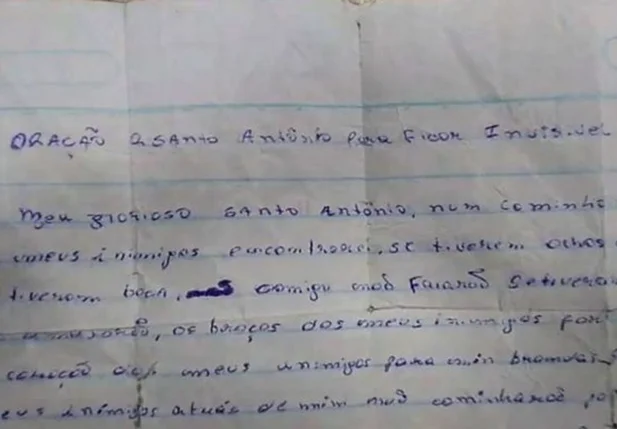 ORAÇÃO a SANTO Antônio para Ficar Invisivel
Meu glorioso SANTO Antônio, num caminho
meus inimigos encontrarei, se tiverem olhos
tiverem boca, comigu não Falarão Setiverem
os braços dos meus inimigos
meus inimigos para min
inimigos atrás de mim não caminharão